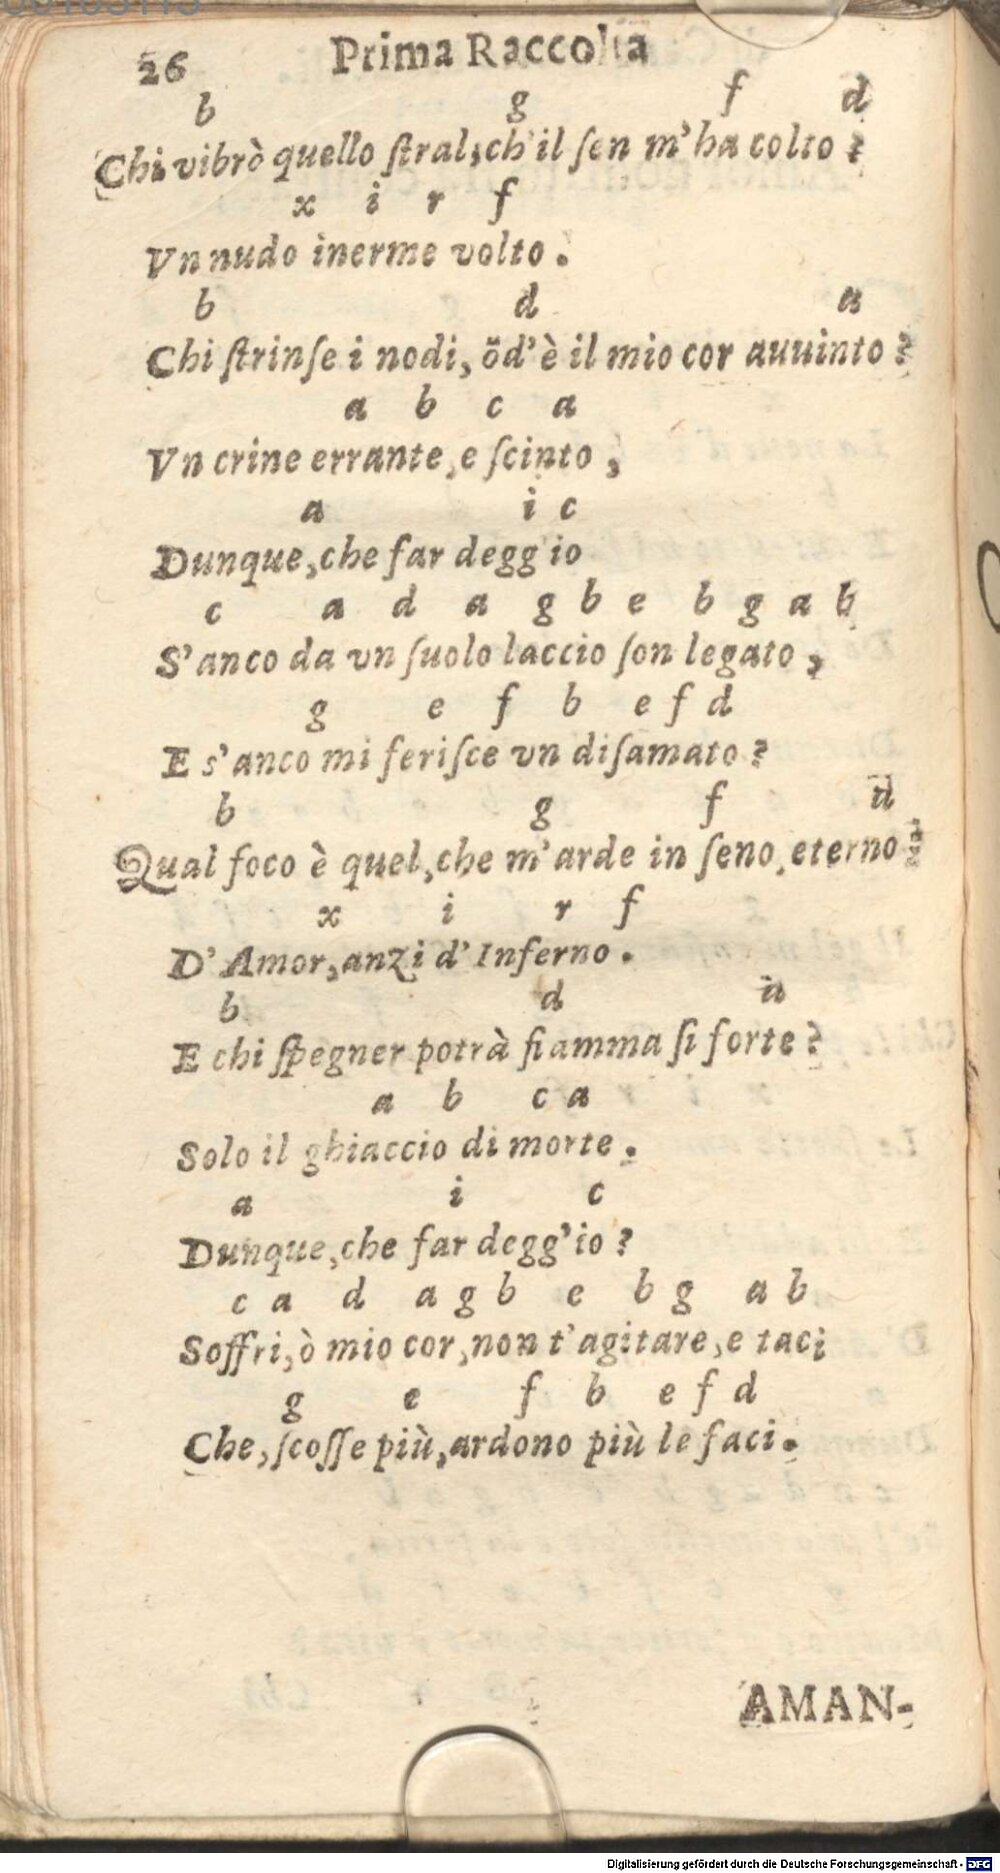 26 Prima Raccolta
b g f d
Chi vibrò quello ſtral, ch'il ſen m'ha colto?
x i r f
Vn nudo inerme volto.
b d a
Chi ſtrinſe i nodi, õd'è il mio cor auuinto?
a b c a
Vn crine errante, e ſcinto,
a i c
Dunque, che far degg io
c a d a g b e b g a b
S'anco da vn ſuolo laccio ſon legato,
g e f b e f d
E s'anco mi feriſce vn diſamato?
b g f d
Qual foco è quel, che m'arde in ſeno, eterno?
x i r f
D'Amor, anzi d'Inferno.
b d a
E chi ſpegner potrà fiamma ſi forte?
a b c a
Solo il ghiaccio di morte.
a i c
Dunque, che far degg'io?
c a d a g b e b g a b
Soffri, ò mio cor, non t'agitare, e taci
g e f b e f d
Che, ſcoſſe più, ardono più le faci.
AMAN-
Digitalisierung gefördert durch die Deutsche Forschungsgemeinschaft - DFG